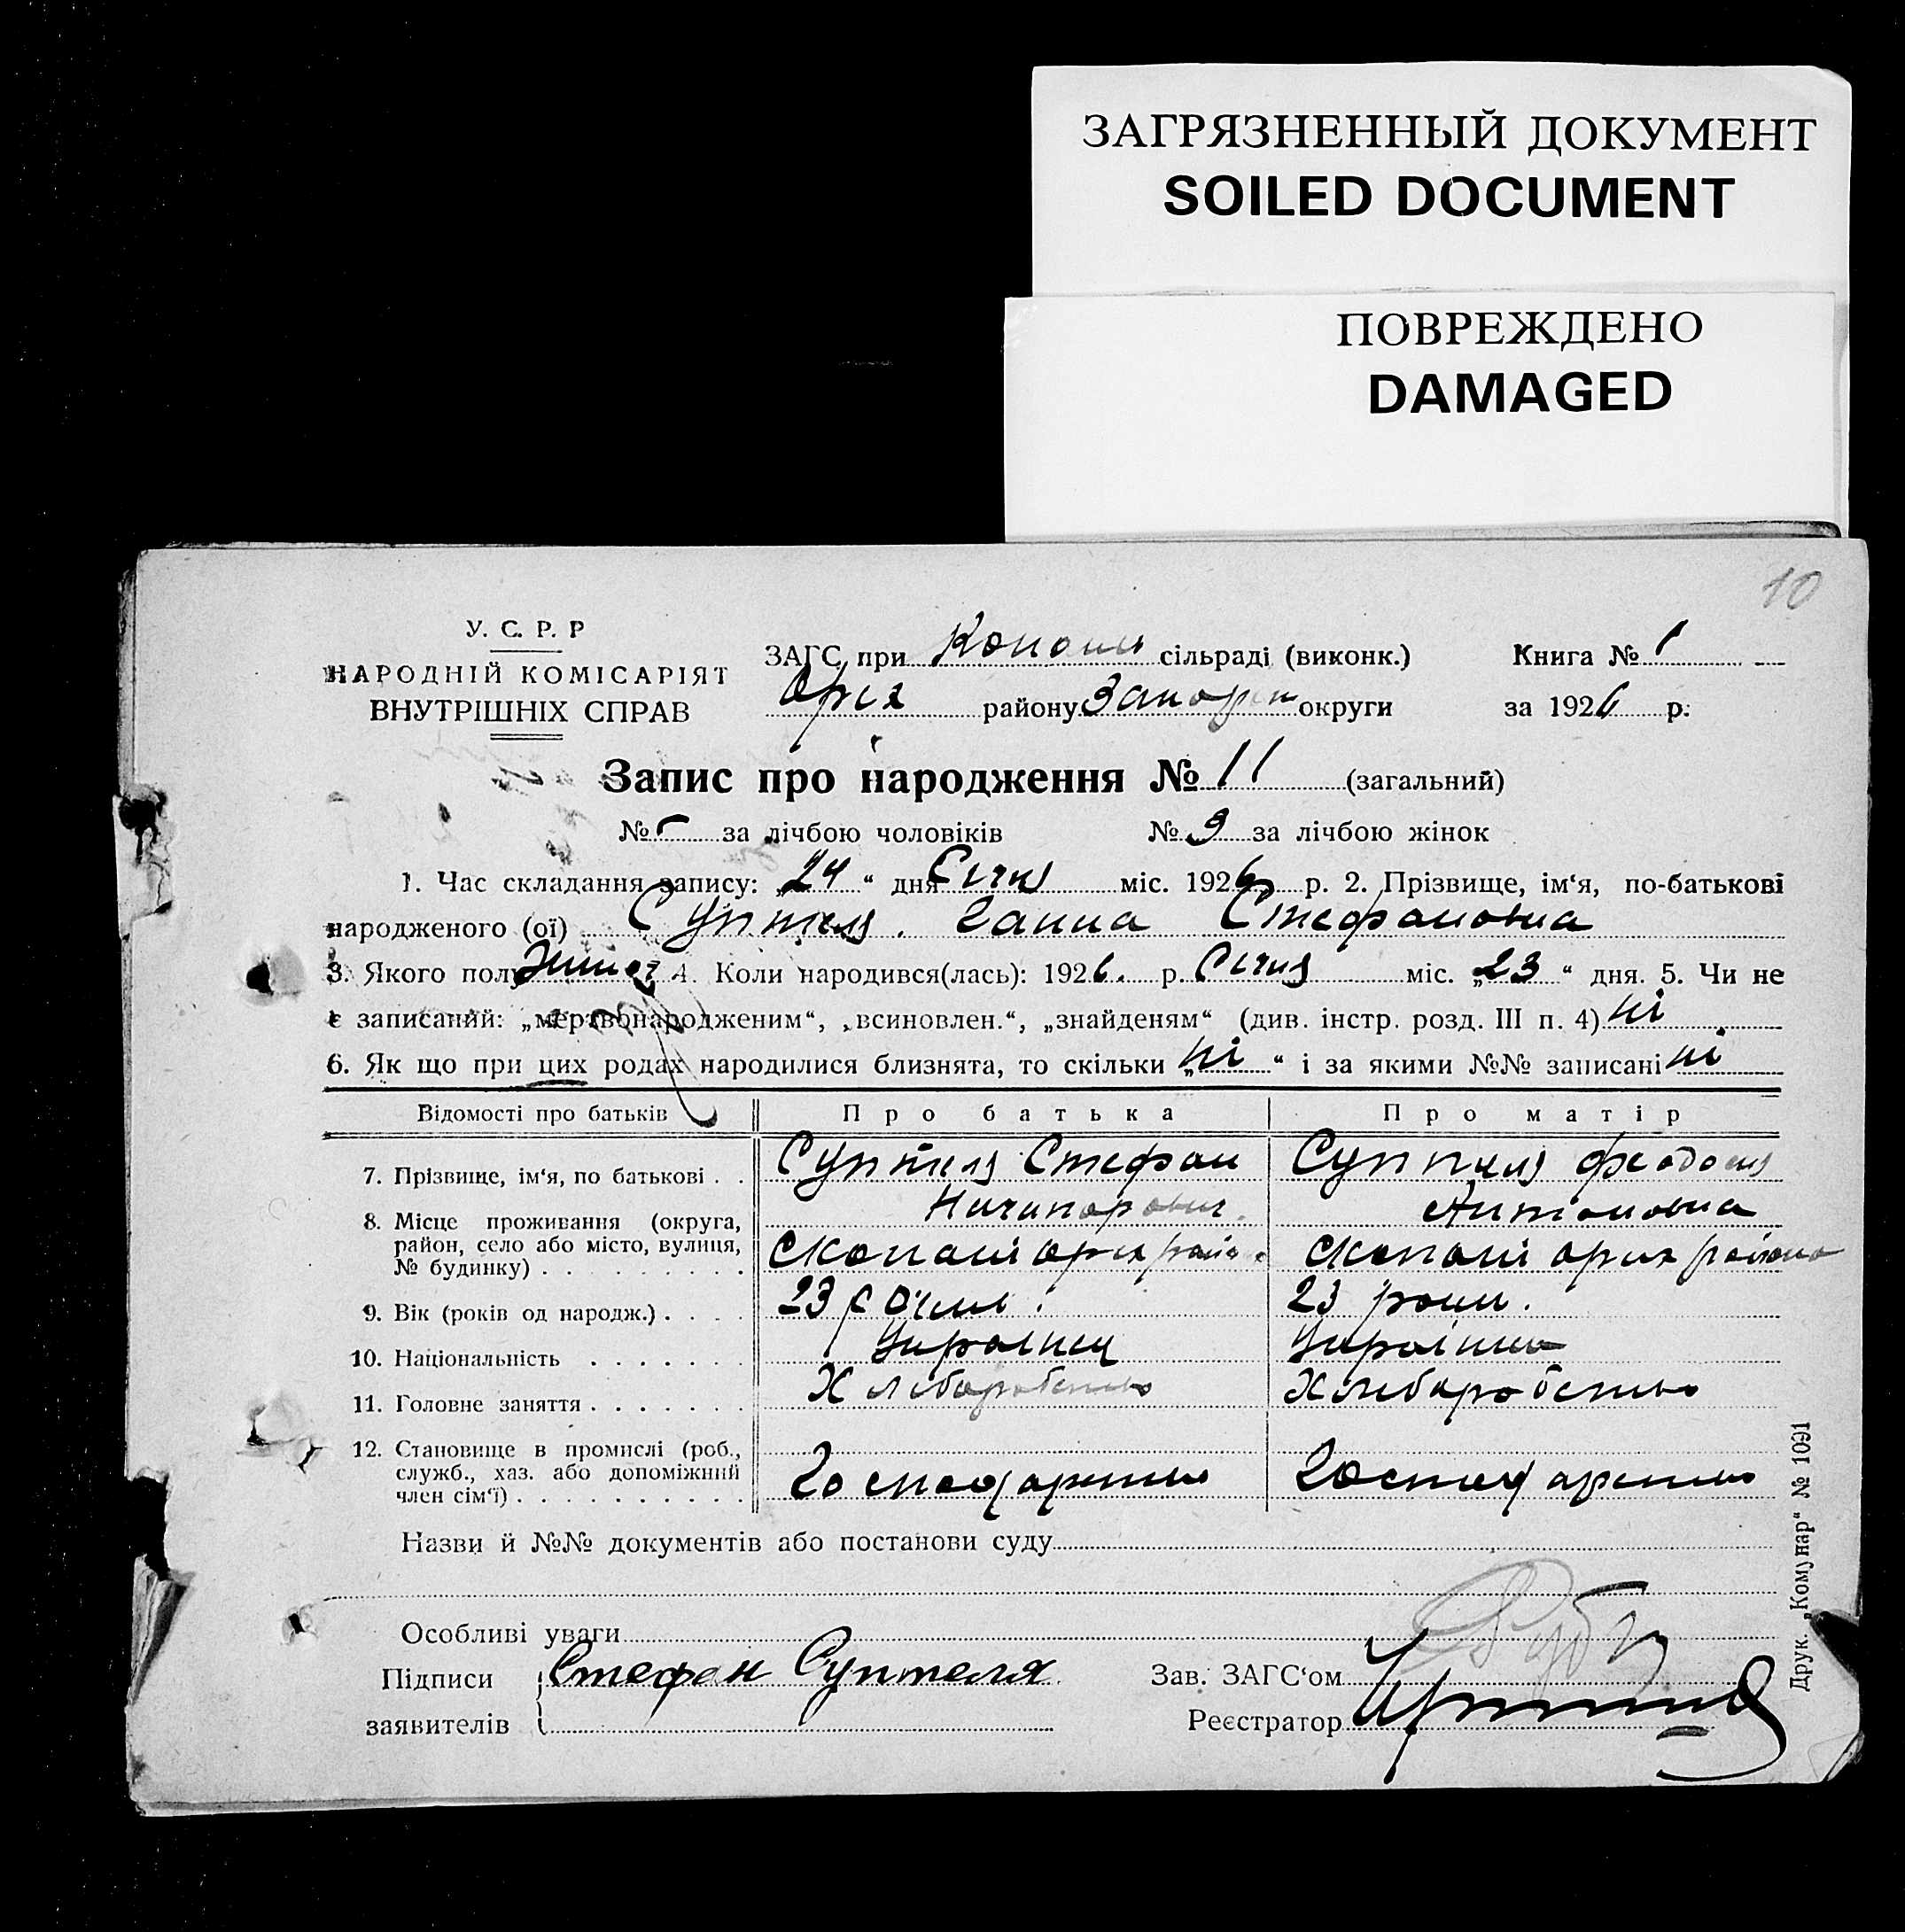 ЗАГРЯЗНЕННЫЙ ДОКУМЕНТ
SOILED DOCUMENT
ПОВРЕЖДЕНО
DAMAGED
10
У. С. Р. Р
НАРОДНІЙ КОМІСАРІЯТ
ВНУТРІШНІХ СПРАВ
ЗАГС при Копани сільраді (виконк.) Книга № 1
Оріх району Запоріж округи за 1926 р.
Запис про народження № 11 (загальний)
№ за лічбою чоловіків № 9 за лічбою жінок
1. Час складання запису: „24“ дня Січня міс. 1926 р. 2. Прізвище, ім‘я, по-батькові
народженого (ої) Суптеля. Ганна Стефановна
3. Якого пол 4. Коли народився(лась): 1926. р. Січня міс. „23“ дня. 5. Чи не
є записаний: „мертвонародженим“, „всиновлен.“, „знайденям“ (див. інстр. розд. III п. 4) ні
6. Як що при цих родах народилися близнята, то скільки „ні“ і за якими №№ записані ні
Відомості про батьків Про батька Про матір
7. Прізвище, ім‘я, по батькові . . Суптеля Стефан Ничипорович. Суптеля Феодосия Антоновна
8. Місце проживання (округа,
район, село або місто, вулиця,
№ будинку) . . . . . . . . . С Копані Оріх району С Копані Оріх району
9. Вік (років од народж.) . . . . 23 роки. 23 роки.
10. Національність . . . . . . . Українец Українка
11. Головне заняття . . . . . . . Хліборобство Хліборобство
12. Становище в промислі (роб.,
служб., хаз. або допоміжний
член сім‘ї) . . . . . . . . . . Господарство Господарство
Назви й №№ документів або постанови суду
Особливі уваги
Підписи Стефан Суптеля Зав. ЗАГС‘ом
заявителів Реєстратор
Друк. „Комунар“ № 1091